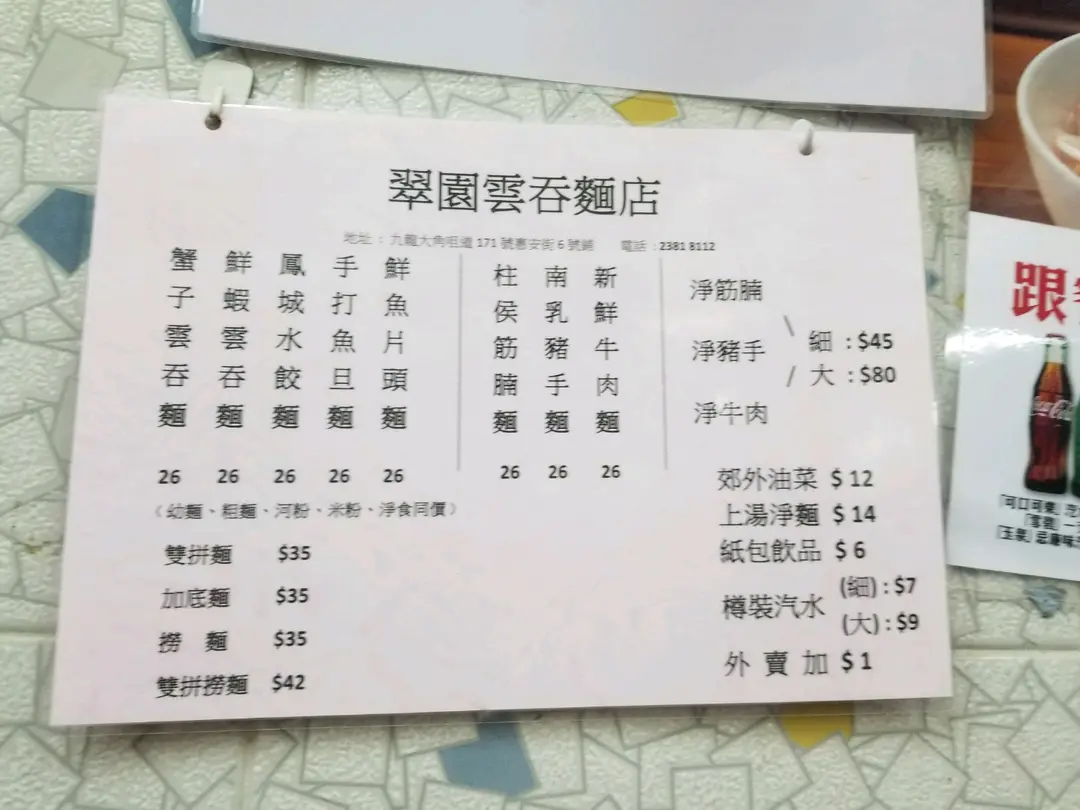 翠園雲吞麵店
地址：九龍大角咀道171號惠安街6號鋪 電話：2381 8112
蟹子雲吞麵 26
鮮蝦雲吞麵 26
鳳城水餃麵 26
手打魚旦麵 26
鮮魚片頭麵 26
（幼麵、粗麵、河粉、米粉、淨食同價）
雙拼麵 $35
加底麵 $35
撈 麵 $35
雙拼撈麵 $42
柱侯筋腩麵 26
南乳豬手麵 26
新鮮牛肉麵 26
淨筋腩
淨豬手
淨牛肉
\ 細：$45
/ 大：$80
郊外油菜 $ 12
上湯淨麵 $ 14
紙包飲品 $ 6
樽裝汽水 (細)：$7
(大)：$9
外 賣 加 $ 1
跟
「可口可樂」